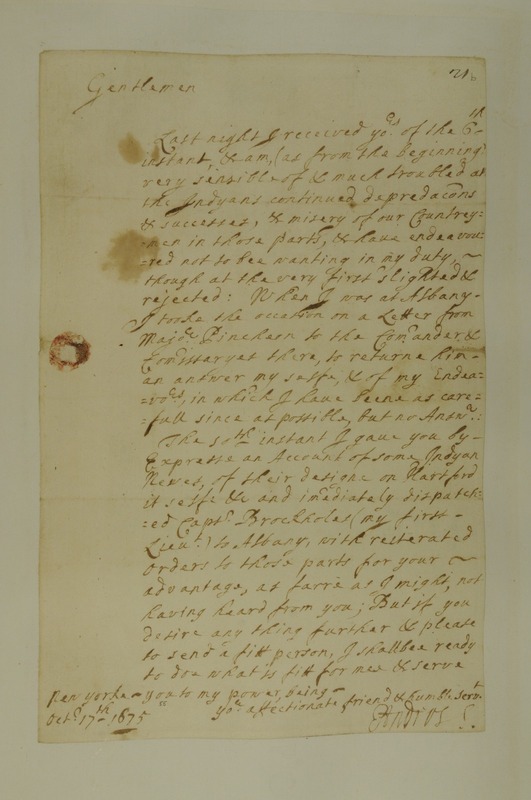 21b
Gentlemen
Last night I received yo.rs of the 6th
instant, & am, (as from the beginning)
very sensible of & much troubled at
the Indyans continued depredacons
& successes, & misery of our Countrey=
=men in those parts, & have endeavou=
=red not to bee wanting in my duty, ~
though at the very first slighted &
rejected: When I was at Albany-
I tooke the occation on a Letter from
Majo.r Pincheon to the Com.ander, &
Comissaryes there, to returne him-
an answer my selfe, & of my Endea=
=vo.rs, in which I have beene as care=
=full since as possible, but no Answ.r:
The 10th instant I gave you by-
Expresse an Account of some Indyan
Newes, of their designe on Hartford
it selfe &c and imediately dispatch=
=ed Capt. Brockholes (my first-
Lieu.t) to Albany, with reiterated
Orders to those parts for your ~
advantage, as farre as I might, not
having heard from you; But if you
desire any thing further & please
to send a fitt person, I shallbee ready
to doe what is fitt for mee & serve
you to my power, being-
yo.r affectionate friend & humble serv.t
New Yorke-
Oct.r 17th 1675
Andros S.